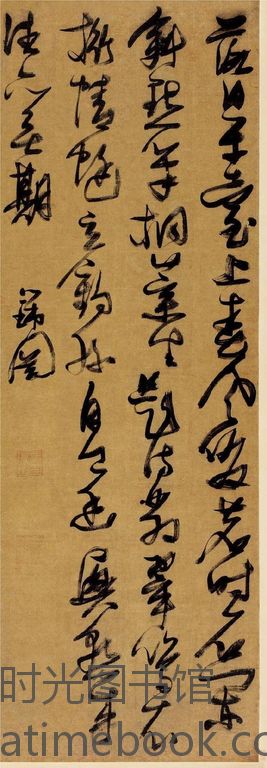 落日平臺上春風啜茗時石闌
斜點筆桐葉坐題詩翡翠鳴衣
桁蜻蜓立釣絲自今幽興熟來
往亦無期 瑞圖
时光图书馆
atimebook.com